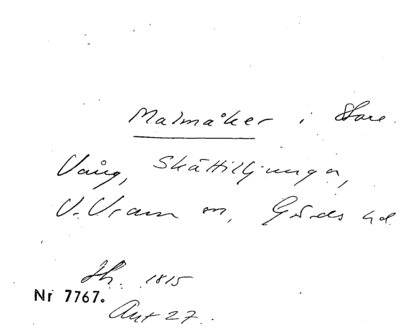 Malmåker i Stora
Vång, Skättilljunga,
V. Vram sn, Gärds hd.
Sk. 1815
Nr 7767.
Avt 27.